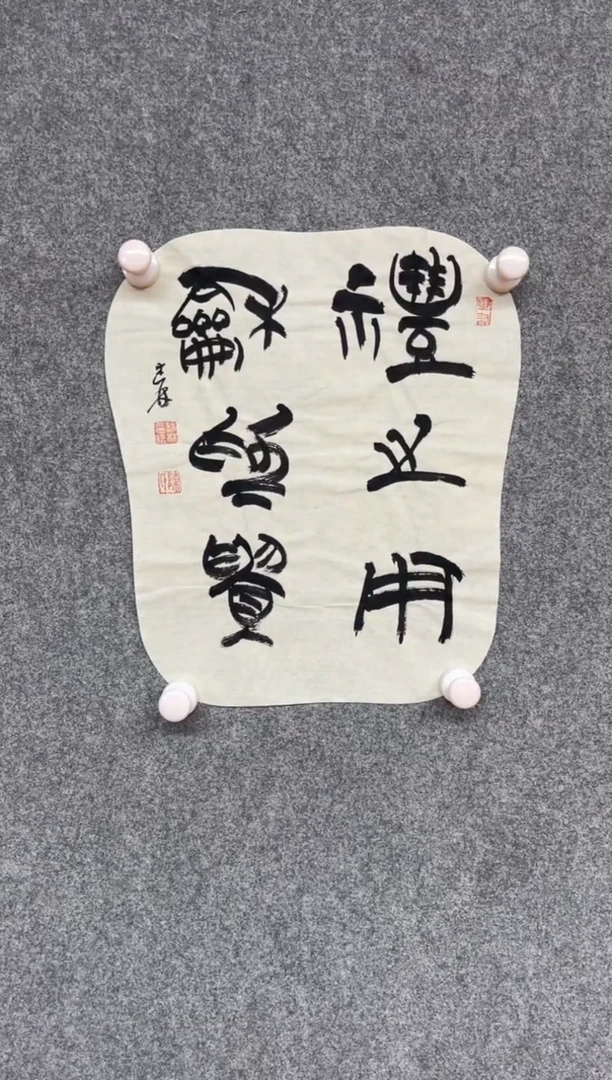 禮之用
龢為貴